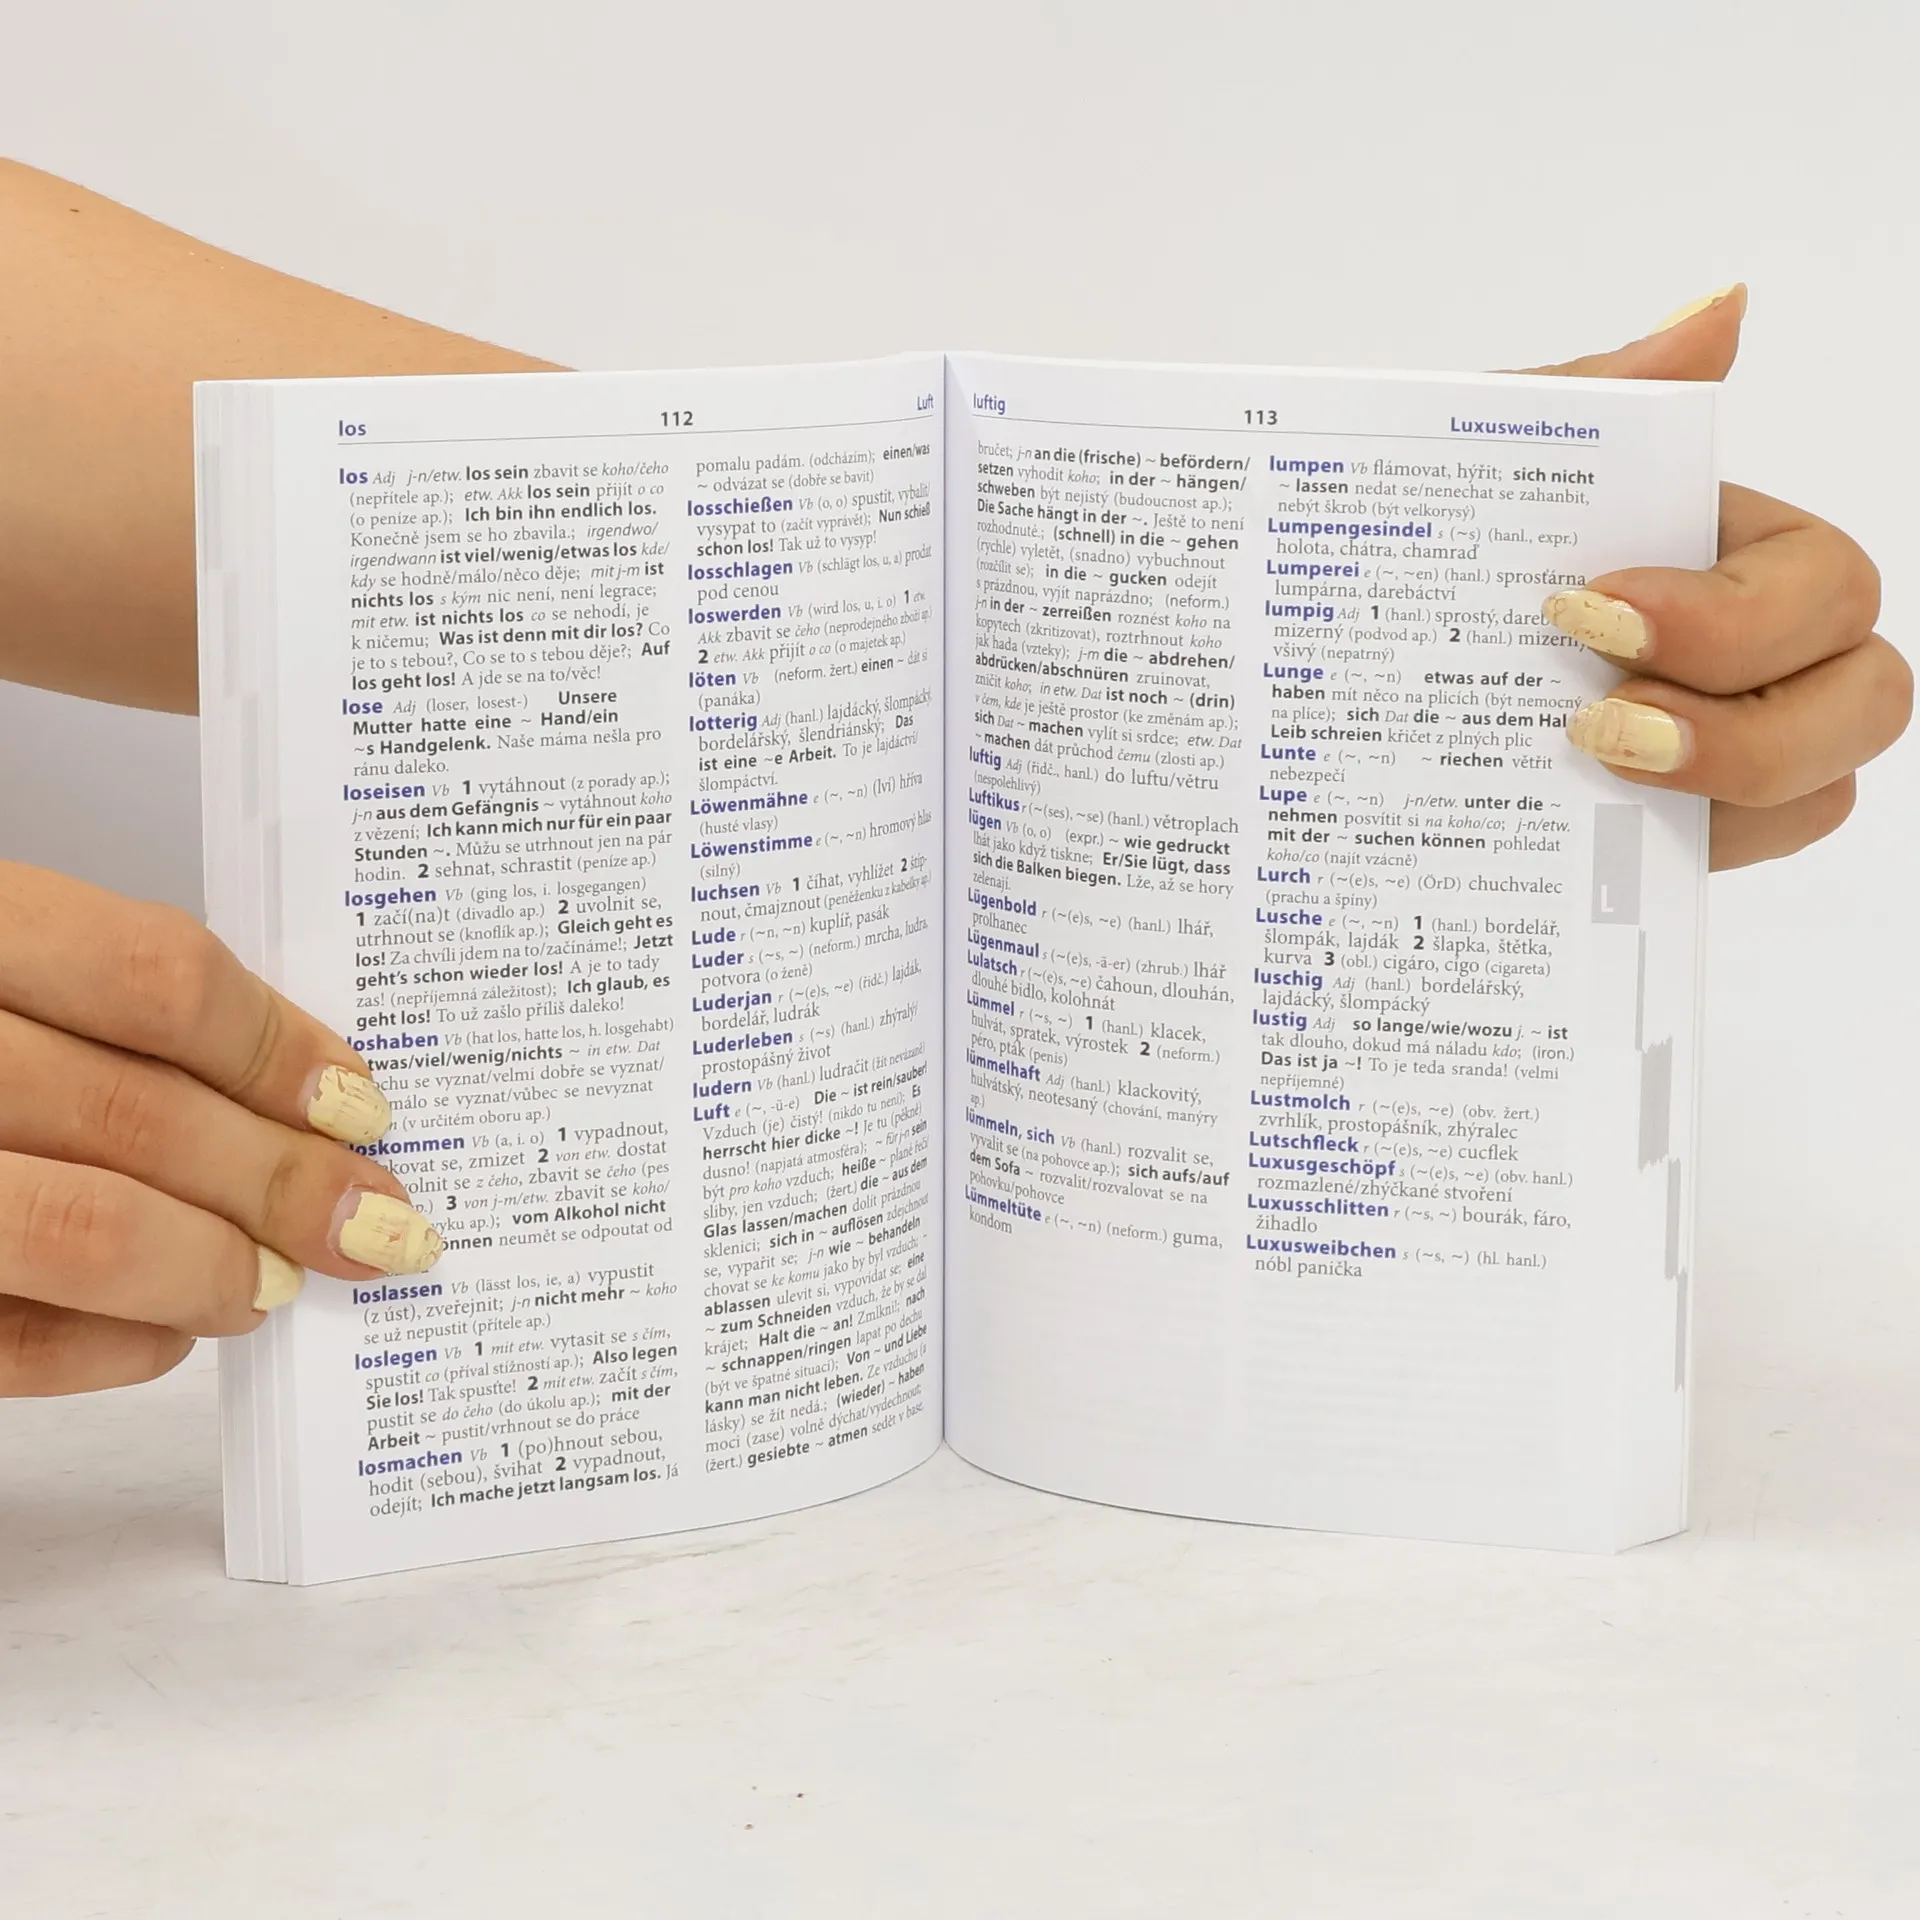 los
112
Luft
los Adj j-n/etw. los sein zbavit se koho/čeho
(nepřítele ap.); etw. Akk los sein přijít o co
(o peníze ap.); Ich bin ihn endlich los.
Konečně jsem se ho zbavila.; irgendwo/
irgendwann ist viel/wenig/etwas los kde/
kdy se hodně/málo/něco děje; mit j-m ist
nichts los s kým nic není, není legrace;
mit etw. ist nichts los co se nehodí, je
k ničemu; Was ist denn mit dir los? Co
je to s tebou?, Co se to s tebou děje?; Auf
los geht los! A jde se na to/věc!
lose Adj (loser, losest-) Unsere
Mutter hatte eine ~ Hand/ein
~s Handgelenk. Naše máma nešla pro
ránu daleko.
loseisen Vb 1 vytáhnout (z porady ap.);
j-n aus dem Gefängnis ~ vytáhnout koho
z vězení; Ich kann mich nur für ein paar
Stunden ~. Můžu se utrhnout jen na pár
hodin. 2 sehnat, schrastit (peníze ap.)
losgehen Vb (ging los, i. losgegangen)
1 začí(na)t (divadlo ap.) 2 uvolnit se,
utrhnout se (knoflík ap.); Gleich geht es
los! Za chvíli jdem na to/začínáme!; Jetzt
geht's schon wieder los! A je to tady
zas! (nepříjemná záležitost); Ich glaub, es
geht los! To už zašlo příliš daleko!
loshaben Vb (hat los, hatte los, h. losgehabt)
etwas/viel/wenig/nichts ~ in etw. Dat
se vyznat/velmi dobře se vyznat/
málo se vyznat/vůbec se nevyznat
(v určitém oboru ap.)
loskommen Vb (a, i. o) 1 vypadnout,
se, zmizet 2 von etw. dostat
z čeho, zbavit se čeho (pes
3 von j-m/etw. zbavit se koho/
ap.); vom Alkohol nicht
können neumět se odpoutat od
loslassen Vb (lässt los, ie, a) vypustit
(z úst), zveřejnit; j-n nicht mehr ~ koho
se už nepustit (přítele ap.)
loslegen Vb 1 mit etw. vytasit se s čím,
spustit co (příval stížností ap.); Also legen
Sie los! Tak spusťte! 2 mit etw. začít s čím,
pustit se do čeho (do úkolu ap.); mit der
Arbeit ~ pustit/vrhnout se do práce
losmachen Vb 1 (po)hnout sebou,
hodit (sebou), švihat 2 vypadnout,
odejít; Ich mache jetzt langsam los. Já
pomalu padám. (odcházím); einen/was
~ odvázat se (dobře se bavit)
losschießen Vb (o, o) spustit, vybalit/
vysypat to (začít vyprávět); Nun schieß
schon los! Tak už to vysyp!
losschlagen Vb (schlägt los, u, a) prodat
pod cenou
loswerden Vb (wird los, u, i. o) 1 etw.
Akk zbavit se čeho (neprodejného zboží ap.)
2 etw. Akk přijít o co (o majetek ap.)
löten Vb (neform. žert.) einen ~ dát si
(panáka)
lotterig Adj (hanl.) lajdácký, šlompácký,
bordelářský, šlendriánský; Das
ist eine ~e Arbeit. To je lajdáctví/
šlompáctví.
Löwenmähne e (~, ~n) (lví) hříva
(husté vlasy)
Löwenstimme e (~, ~n) hromový hlas
(silný)
luchsen Vb 1 číhat, vyhlížet 2 štíp-
nout, čmajznout (peněženku z kabelky ap.)
Lude r (~n, ~n) kuplíř, pasák
Luder s (~s, ~) (neform.) mrcha, ludra,
potvora (o ženě)
Luderjan r (~(e)s, ~e) (řidč.) lajdák,
bordelář, ludrák
Luderleben s (~s) (hanl.) zhýralý/
prostopášný život
ludern Vb (hanl.) ludračit (žít nevázaně)
Luft e (~, -ü-e) Die ~ ist rein/sauber!
Vzduch (je) čistý! (nikdo tu není); Es
herrscht hier dicke ~! Je tu (pěkně)
dusno! (napjatá atmosféra); ~ für j-n sein
být pro koho vzduch; heiße ~ plané řeči/
sliby, jen vzduch; (žert.) die ~ aus dem
Glas lassen/machen dolít prázdnou
sklenici; sich in ~ auflösen zdejchnout
se, vypařit se; j-n wie ~ behandeln
chovat se ke komu jako by byl vzduch; ~
ablassen ulevit si, vypovídat se; eine
~ zum Schneiden vzduch, že by se dal
krájet; Halt die ~ an! Zmlkni!; nach
~ schnappen/ringen lapat po dechu
(být ve špatné situaci); Von ~ und Liebe
kann man nicht leben. Ze vzduchu (a
lásky) se žít nedá.; (wieder) ~ haben
moci (zase) volně dýchat/vydechnout;
(žert.) gesiebte ~ atmen sedět v base,
luftig
113
Luxusweibchen
bručet; j-n an die (frische) ~ befördern/
setzen vyhodit koho; in der ~ hängen/
schweben být nejistý (budoucnost ap.);
Die Sache hängt in der ~. Ještě to není
rozhodnuté.; (schnell) in die ~ gehen
(rychle) vyletět, (snadno) vybuchnout
(rozčílit se); in die ~ gucken odejít
s prázdnou, vyjít naprázdno; (neform.)
j-n in der ~ zerreißen roznést koho na
kopytech (zkritizovat), roztrhnout koho
jak hada (vzteky); j-m die ~ abdrehen/
abdrücken/abschnüren zruinovat,
zničit koho; in etw. Dat ist noch ~ (drin)
v čem, kde je ještě prostor (ke změnám ap.);
sich Dat ~ machen vylít si srdce; etw. Dat
~ machen dát průchod čemu (zlosti ap.)
luftig Adj (řidč., hanl.) do luftu/větru
(nespolehlivý)
Luftikus r (~(ses), ~se) (hanl.) větroplach
lügen Vb (o, o) (expr.) ~ wie gedruckt
lhát jako když tiskne; Er/Sie lügt, dass
sich die Balken biegen. Lže, až se hory
zelenají.
Lügenbold r (~(e)s, ~e) (hanl.) lhář,
prolhanec
Lügenmaul s (~(e)s, -ä-er) (zhrub.) lhář
Lulatsch r (~(e)s, ~e) čahoun, dlouhán,
dlouhé bidlo, kolohnát
Lümmel r (~s, ~) 1 (hanl.) klacek,
hulvát, spratek, výrostek 2 (neform.)
péro, pták (penis)
lümmelhaft Adj (hanl.) klackovitý,
hulvátský, neotesaný (chování, manýry
ap.)
lümmeln, sich Vb (hanl.) rozvalit se,
vyvalit se (na pohovce ap.); sich aufs/auf
dem Sofa ~ rozvalit/rozvalovat se na
pohovku/pohovce
Lümmeltüte e (~, ~n) (neform.) guma,
kondom
lumpen Vb flámovat, hýřit; sich nicht
~ lassen nedat se/nenechat se zahanbit,
nebýt škrob (být velkorysý)
Lumpengesindel s (~s) (hanl., expr.)
holota, chátra, chamraď
Lumperei e (~, ~en) (hanl.) sprosťárna,
lumpárna, darebáctví
lumpig Adj 1 (hanl.) sprostý,
mizerný (podvod ap.) 2 (hanl.) mizerný,
všivý (nepatrný)
Lunge e (~, ~n) etwas auf der ~
haben mít něco na plicích (být nemocný
na plíce); sich Dat die ~ aus dem
Leib schreien křičet z plných plic
Lunte e (~, ~n) ~ riechen větřit
nebezpečí
Lupe e (~, ~n) j-n/etw. unter die ~
nehmen posvítit si na koho/co; j-n/etw.
mit der ~ suchen können pohledat
koho/co (najít vzácně)
Lurch r (~(e)s, ~e) (ÖrD) chuchvalec
(prachu a špíny)
Lusche e (~, ~n) 1 (hanl.) bordelář,
šlompák, lajdák 2 šlapka, štětka,
kurva 3 (obl.) cigáro, cígo (cigareta)
luschig Adj (hanl.) bordelářský,
lajdácký, šlompácký
lustig Adj so lange/wie/wozu j. ~ ist
tak dlouho, dokud má náladu kdo; (iron.)
Das ist ja ~! To je teda sranda! (velmi
nepříjemné)
Lustmolch r (~(e)s, ~e) (obv. žert.)
zvrhlík, prostopášník, zhýralec
Lutschfleck r (~(e)s, ~e) cucflek
Luxusgeschöpf s (~(e)s, ~e) (obv. hanl.)
rozmazlené/zhýčkané stvoření
Luxusschlitten r (~s, ~) bourák, fáro,
žihadlo
Luxusweibchen s (~s, ~) (hl. hanl.)
nóbl panička
L